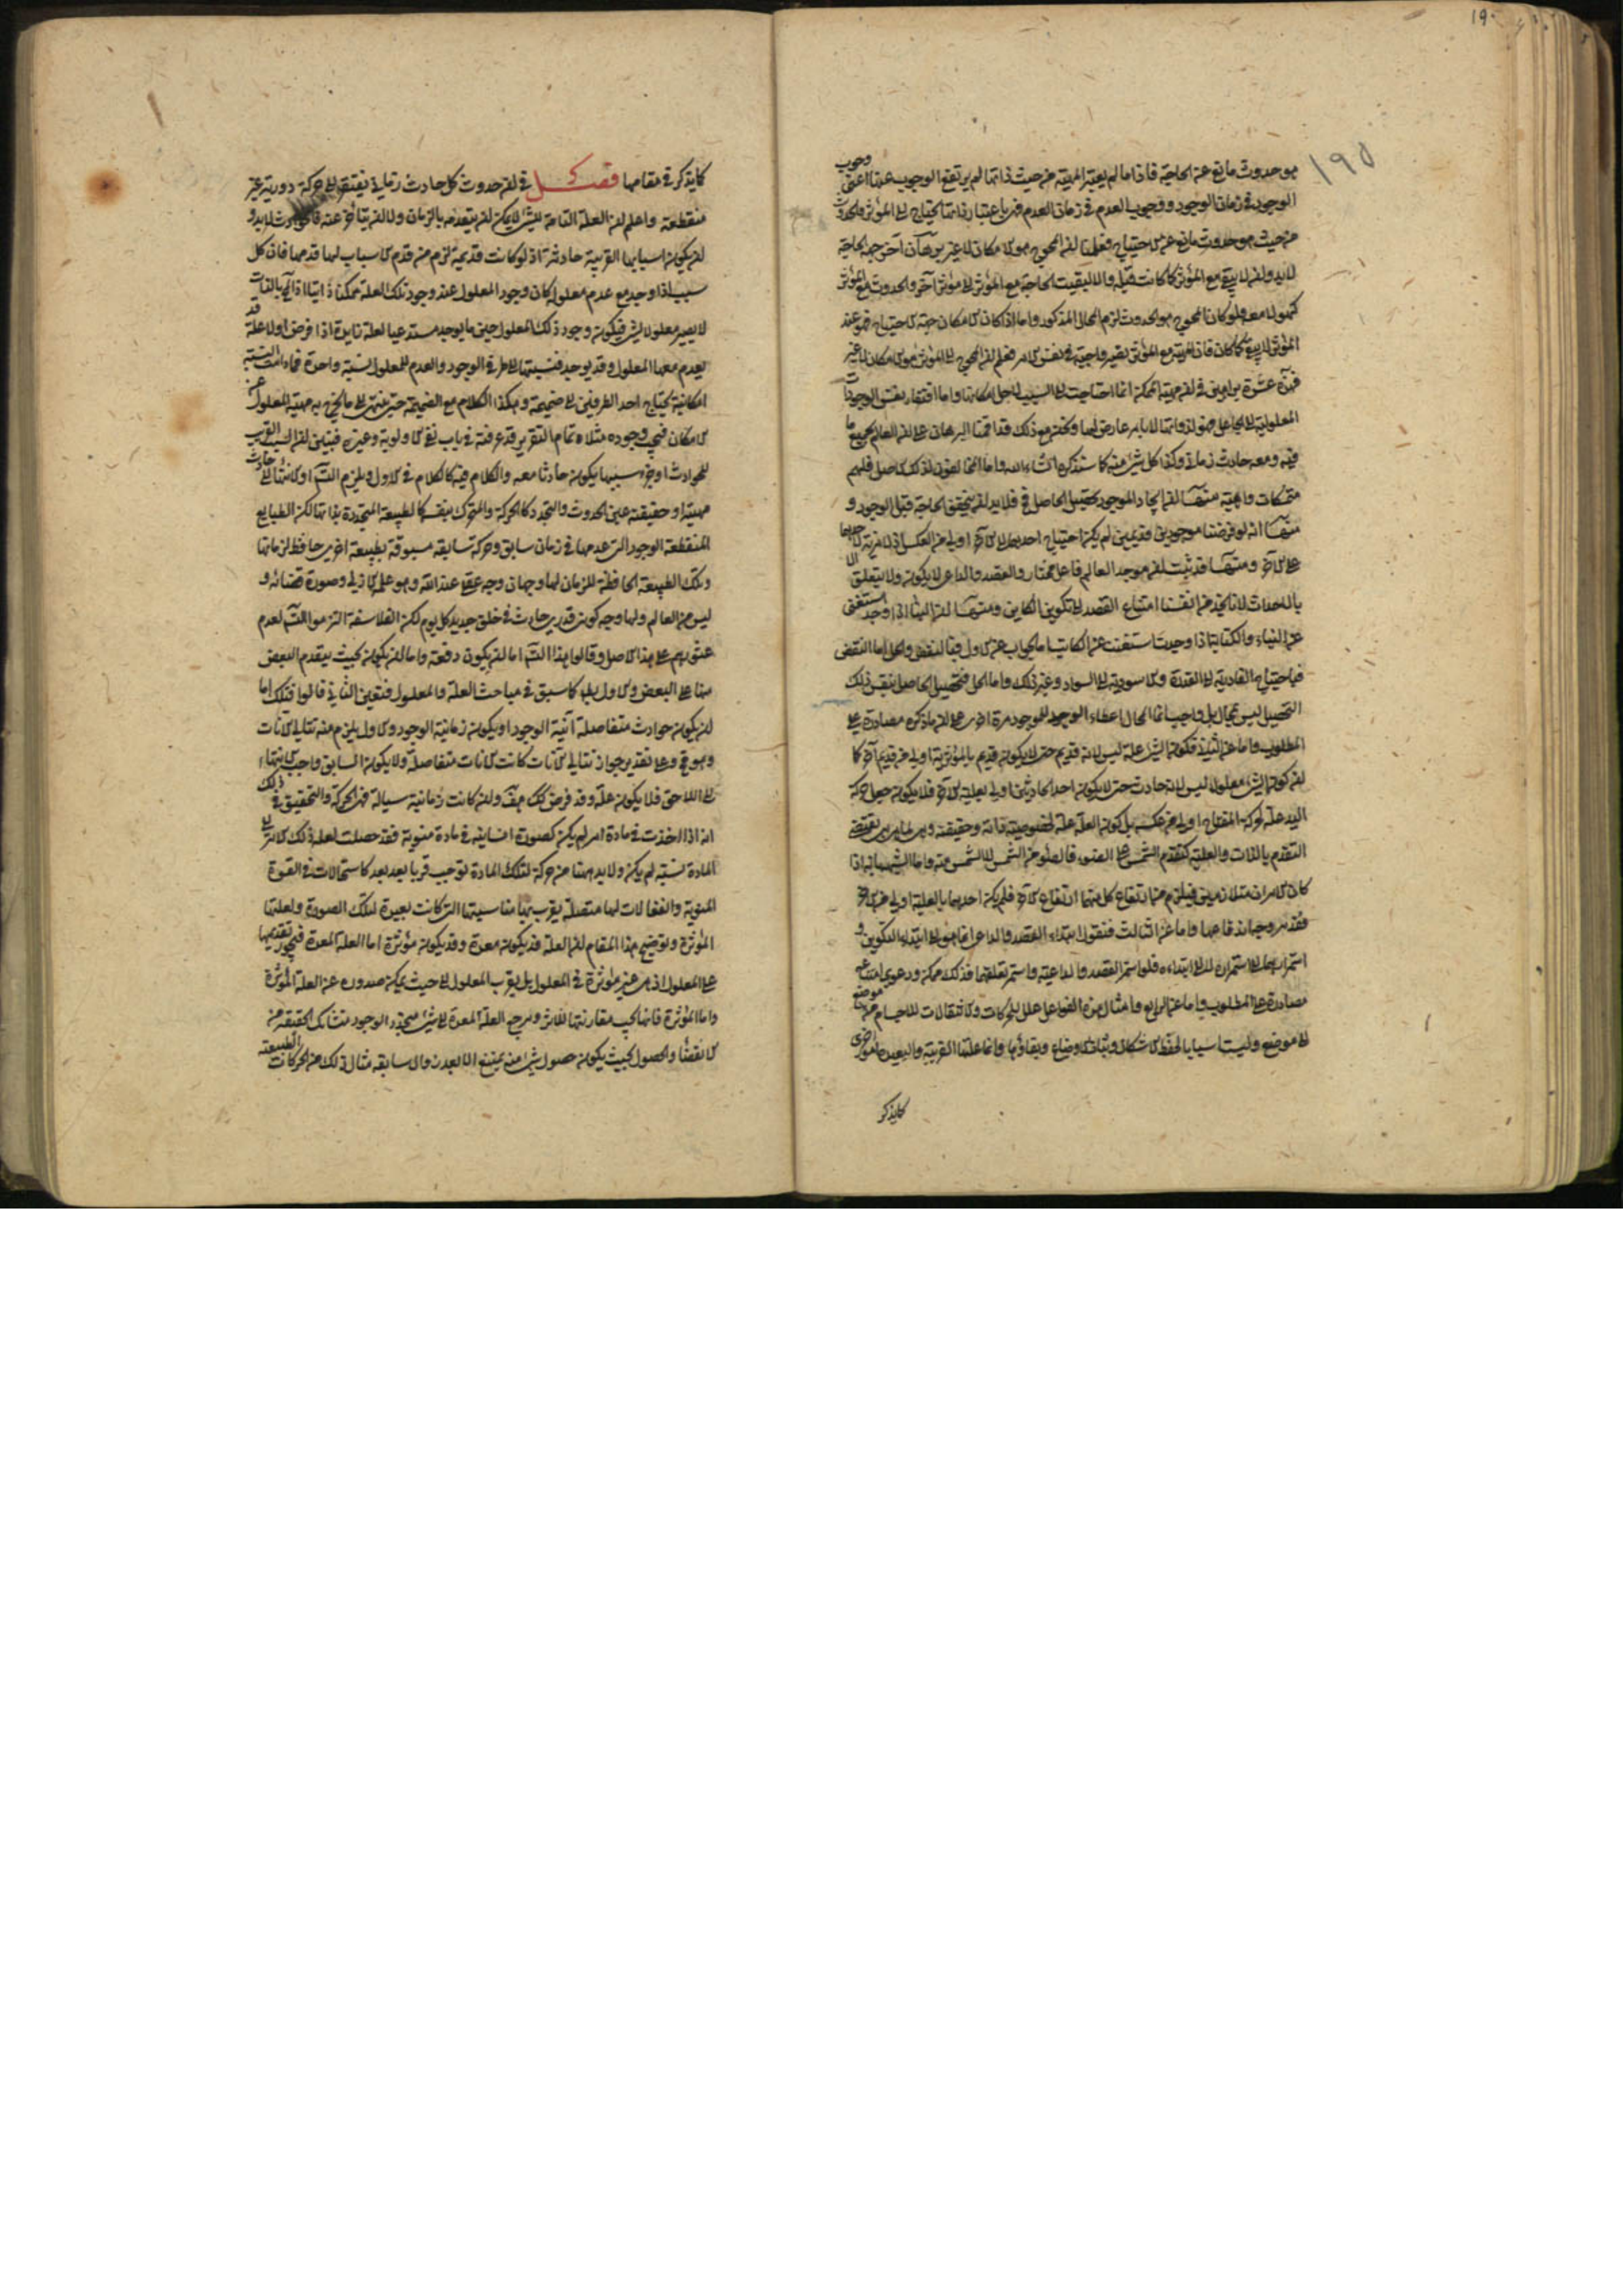 ١٩٠
١٩٥
هو حدوث مانع عن الحاجة فاذا ما لم يعتبر المهية من حيث ذاتها لم يرتفع الوجوب عنها اعنى وجوب
الوجود فى زمان الوجود ووجوب العدم فى زمان العدم فهى باعتبار ذاتها يحتاج الى المؤثر والحدوث
من حيث هو حدوث مانع عن الاحتياج فعلمنا ان المحوج هو الامكان لا غير برهان آخر جهة الحاجة
لا بد وان لا يبقى مع المؤثر كما كانت قبله والا لبقيت الحاجة مع المؤثر الى مؤثر آخر والحدوث مع المؤثر
كهو لا معه فلو كان المحوج هو الحدوث لزم المحال المذكور واما اذا كان الامكان جهة الاحتياج فهو عند
المؤثر لا يبقى كما كان فان المهية مع المؤثر تصير واجبة فى نفس الامر فعلم ان المحوج الى المؤثر هو الامكان لا غير
فهذه عشرة براهين فى ان مهية الممكن انما احتاجت الى السبب لاجل امكانها واما افتقار نفس الوجودات
المعلولية الى الجاعل فهو لذواتها لا بامر عارض لها ونحن مع ذلك قد اقمنا البرهان على ان العالم بجميع ما
فيه ومعه حادث زمانى وكذا كل شىء منه كما ستذكره ان شاء الله واما
متمسكات واهية منها ان ايجاد الموجود تحصيل الحاصل فلا بد ان يتحقق الحاجة قبل الوجود و
منها انه لو فرضنا موجودين قديمين لم يكن احتياج احدهما الى الآخر اولى من العكس اذ لا مزية لاحدهما
على الآخر ومنها قد ثبت ان موجد العالم فاعل مختار والقصد والداعى لا يكون ولا يتعلق الا
بالاحداث لانا نجد من انفسنا امتناع القصد الى تكوين الكاين ومنها ان البناء اذا وجد استغنى
عن البناء والكتابة اذا وجدت استغنت عن الكاتب والجواب عن الاول فبالنقض والحل اما النقض
فباحتياج القادرية الى القدرة والاسودية الى السواد وغير ذلك واما الحل فتحصيل الحاصل بنفس ذلك
التحصيل ليس بمحال بل واجب انما المحال اعطاء الوجود للموجود مرة اخرى على ان ما ذكره مصادرة على
المطلوب واما عن الثانى فكون الشىء علة ليس لانه قديم حتى لا يكون قديم بالمؤثرية اولى من قديم آخر كما
ان كون الشىء معلولا ليس لانه حادث حتى لا يكون احد الحادثين اولى بعلية الآخر فلا يكون جعل حركة
اليد علة لحركة المفتاح اولى من عكسه بل كون العلة علة لخصوصية ذاته وحقيقته وهى لما هى هى تقتضى
التقدم بالذات والعلية كتقدم الشمس على الضوء فالضوء من الشمس لا الشمس منه واما الشبهة بانه اذا
كان الامران متلازمين فيلزم من ارتفاع كل منهما ارتفاع الآخر فلم يكن احدهما بالعلية اولى من الآخر
فقد مر وجه اندفاعها واما عن الثالث فنقول ابتداء القصد والداعى انما هو الى ابتداء التكوين و
استمرارهما الى استمراره لا الى ابتداءه فلو استمر القصد والداعية واستمر تعلقهما فذلك ممكن ودعوى امتناعه
مصادرة على المطلوب واما عن الرابع فامثال هذه الفواعل علل للحركات والانتقالات للاجسام من موضع
الى موضع وليست اسبابا لحفظ الاشكال وثبات الاوضاع وبقاؤها وانما علتها القريبة والبعيدة امور اخرى
كما يذكر
كما يذكر فى مقامها فصل فى ان حدوث كل حادث زمانى يفتقر الى حركة دورية غير
منقطعة واعلم ان العلة التامة للشىء لا يمكن ان يتقدمه بالزمان ولا ان يتأخر عنه فالحوادث لا بد و
ان يكون اسبابها القريبة حادثة اذ لو كانت قديمة لزم من قدم الاسباب لها قدمها فان كل
سبب اذا وجد مع عدم معلول كان وجود المعلول عند وجود تلك العلة ممكنا ذاتيا اذ المحال بالذات
لا يصير معلولا لشىء فيكون وجود ذلك المعلول حين ما يوجد مستدعيا لعلة زايدة اذا فرض اولا علة قد
يعدم معها المعلول وقد يوجد فنسبتها الى طرفى الوجود والعدم للمعلول نسبة واحدة فما دامت النسبة
امكانية يحتاج احد الطرفين الى ضميمة وهكذا الكلام مع الضميمة حتى ينتهى الى ما يخرج به مهية المعلول عن
الامكان فيجب وجوده مثلا تمام التقرير قد عرفته فى باب نفى الاولوية وغيره فتبين ان السبب القريب
للحوادث او جزء سببها يكون حادثا معه والكلام فيه كالكلام فى الاول ويلزم التسلسل او الانتهاء الى حادث
مهيته او حقيقته عين الحدوث والتجدد كالحركة والمتحرك بنفسه كالطبيعة المتجددة بذاتها لكن الطبايع
المنقطعة الوجود التى عدمها فى زمان سابق وحركة سابقة مسبوقة بطبيعة اخرى حافظ لزمانها
وتلك الطبيعة الحافظة للزمان لها وجهان وجه عقلى عند الله وهو علمه الازلى وصورة قضائه و
ليس من العالم ولها وجه كونى قدرى حادث فى خلق جديد كل يوم لكن الفلاسفة التزموا التسلسل لعدم
عثورهم على هذا الاصل وقالوا هذا التسلسل اما ان يكون دفعة واما ان يكون بحيث يتقدم البعض
منها على البعض والاول بطل كما سبق فى مباحث العلة والمعلول فتعين الثانى قالوا فتلك اما
ان يكون حوادث متفاصلة آنية الوجود او يكون زمانية الوجود والاول يلزم منه تتالى الآنات
وهو مح وعلى تقدير جواز تتالى الآنات كانت الآنات متفاصلة ولا يكون السابق واجب الانتهاء
الى اللاحق فلا يكون علة وقد فرض كك هف وان كانت زمانية سيالة فهى الحركة والتحقيق فى ذلك
انه اذا اخذت فى مادة امر لم يكن كصورة انسانية فى مادة منوية فقد حصلت لعلة ذلك الامر الى
المادة نسبة لم يكن ولا بد هنا من حركة لتلك المادة توجب قربا بعد بعد كاستحالات فى القوة
المنوية وانفعالات لها متصلة يقرب بها مناسبتها التى كانت بعيدة لتلك الصورة ولعلتها
المؤثرة وتوضيح هذا المقام ان العلة قد يكون معدة وقد يكون مؤثرة اما العلة المعدة فيجوز تقديمها
على المعلول اذ هى غير مؤثرة فى المعلول بل يقرب المعلول الى حيث يمكن صدوره عن العلة المؤثرة
واما المؤثرة فانها يجب مقارنتها للاثر ومرجع العلة المعدة الى شىء متجدد الوجود متشابك الحقيقة من
الانقضاء والحصول بحيث يكون حصول شىء منه يمتنع الا بعد زوال سابقه مثال ذلك من الحركات الطبيعية